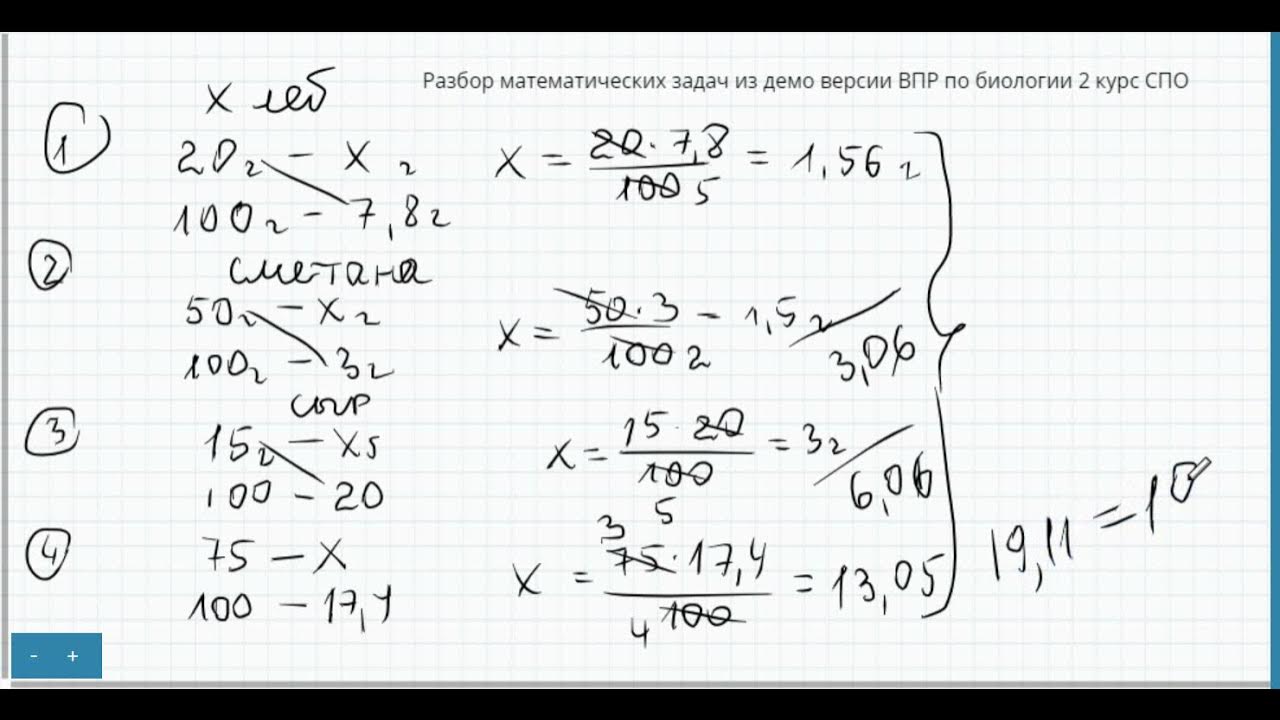 Разбор математических задач из демо версии ВПР по биологии 2 курс СПО
1
хлеб
20г – x г
100г – 7,8г
x = 20·7,8 / 100 5 = 1,56 г
2
сметана
50г – xг
100г – 3г
x = 50·3 / 100 2 – 1,5г
3,06
3
сыр
15г – x
100 – 20
x = 15·20 / 100 5 = 3г
6,06
4
75 – x
100 – 17,4
x = 3 75·17,4 / 4 100 = 13,05
19,11 = 1
- +